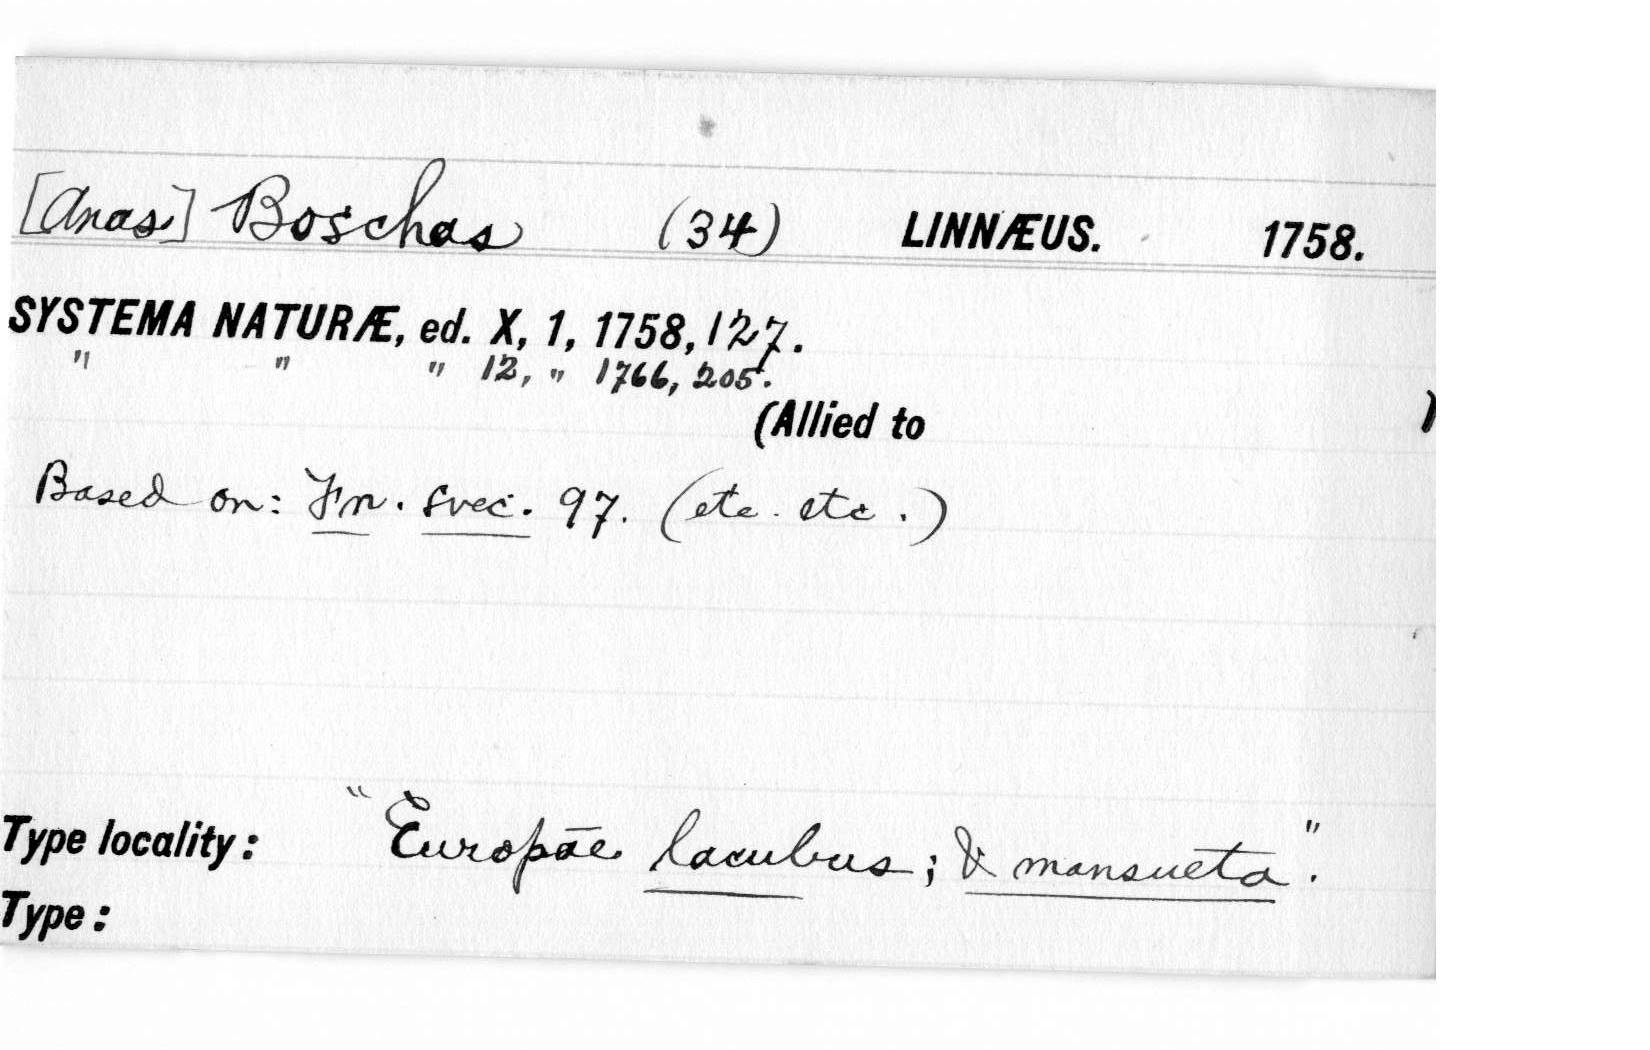 [Anas] Boschas (34) LINNÆUS. 1758.
SYSTEMA NATURÆ, ed. X, 1, 1758, 127.
" " " 12, " 1766, 205.
(Allied to )
Based on: Fn. svec. 97. (etc. etc.)
Type locality: "Europæ lacubus; & mansueta."
Type: